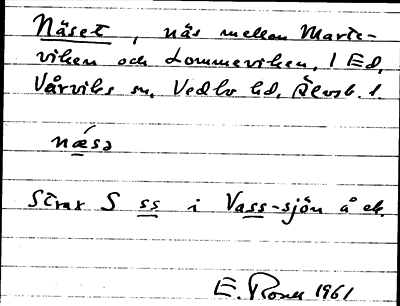 Näset, näs mellan Marte-
viken och Lommeviken, l Ed,
Vårviks sn, Vedbo hd, Älvsb. l.
nǽsə
Strax S ss i Vass-sjön å ek.
E. 1961